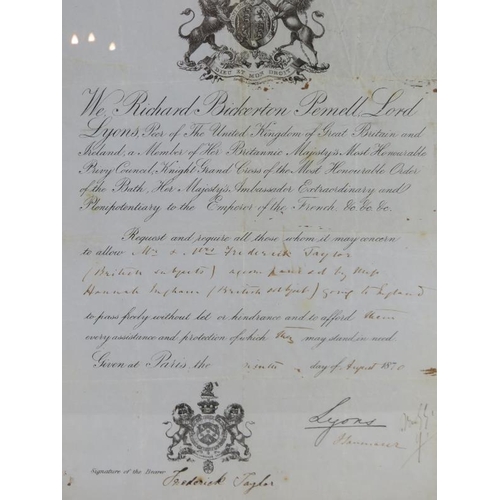 DIEU ET MON DROIT
We, Richard Bickerton Pemell, Lord
Lyons, Peer of The United Kingdom of Great Britain and
Ireland, a Member of Her Britannic Majesty's Most Honourable
Privy Council, Knight Grand Cross of the Most Honourable Order
of the Bath, Her Majesty's Ambassador Extraordinary and
Plenipotentiary to the Emperor of the French, &c &c &c.
Request and require all those whom it may concern
to allow Mr & Mrs Frederick Taylor
(British subjects) accompanied by Miss
Hannah Ingham (British subject) going to England
to pass freely without let or hindrance and to afford them
every assistance and protection of which they may stand in need.
Given at Paris, the day of August 1870
Lyons
Signature of the Bearer
Frederick Taylor